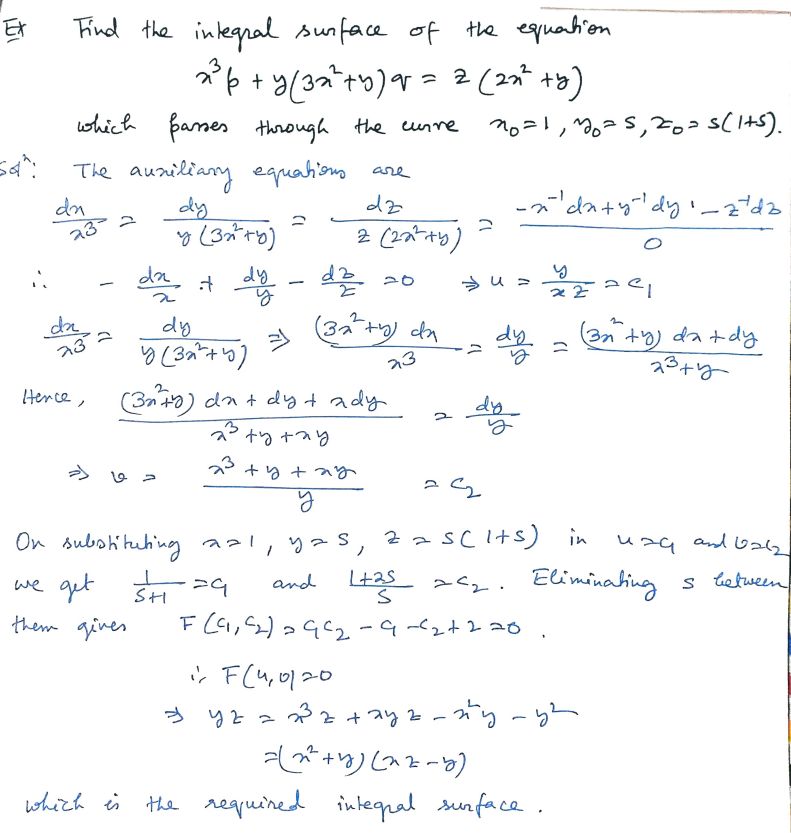 Ex Find the integral surface of the equation
x³p + y(3x²+y)q = z(2x²+y)
which passes through the curve x₀=1, y₀=s, z₀=s(1+s).
Solⁿ: The auxiliary equations are
dx/x³ = dy/(y(3x²+y)) = dz/(z(2x²+y)) = (-x⁻¹dx+y⁻¹dy-z⁻¹dz)/0
∴ - dx/x + dy/y - dz/z = 0 ⇒ u = y/(xz) = c₁
dx/x³ = dy/(y(3x²+y)) ⇒ (3x²+y)dx/x³ = dy/y = ((3x²+y)dx+dy)/(x³+y)
Hence, ((3x²+y)dx + dy + xdy)/(x³+y+xy) = dy/y
⇒ v = (x³+y+xy)/y = c₂
On substituting x=1, y=s, z=s(1+s) in u=c₁ and v=c₂
we get 1/(s+1) = c₁ and (1+2s)/s = c₂. Eliminating s between
them gives F(c₁,c₂) = c₁c₂ - c₁ - c₂ + 2 = 0.
∴ F(u,v)=0
⇒ yz = x³z + xyz - x²y - y²
=(x²+y)(xz-y)
which is the required integral surface.